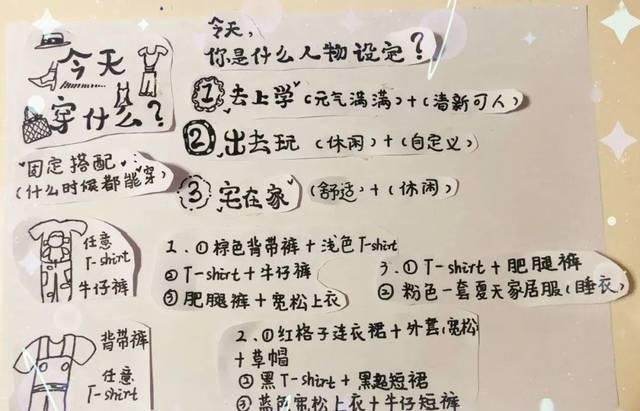 今天
穿什么?
今天,
你是什么人物设定?
① 去上学 (元气满满) + (清新可人)
② 出去玩 (休闲) + (自定义)
③ 宅在家 (舒适) + (休闲)
固定搭配
(什么时候都能穿)
任意
T-shirt
牛仔裤
1. ① 棕色背带裤 + 浅色T-shirt
② T-shirt + 牛仔裤
③ 肥腿裤 + 宽松上衣
3. ① T-shirt + 肥腿裤
② 粉色一套夏天家居服 (睡衣)
背带裤
任意
T-shirt
2. ① 红格子连衣裙 + 外套(宽松)
+ 草帽
② 黑T-shirt + 黑短裙
③ 蓝色宽松上衣 + 牛仔短裤